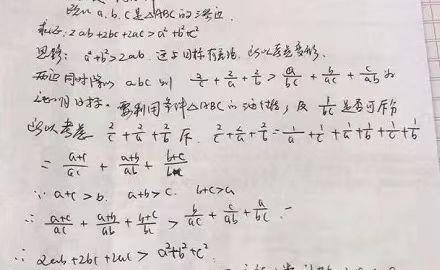 已知 a.b.c 是△ABC的三边.
求证: 2ab+2bc+2ac>a²+b²+c²
思路: a²+b²>2ab. 这与目标有
两边同时除以 abc 则 2/c + 2/a + 2/b > a/bc + b/ac + c/ab 为
目标. 要利用条件△ABC 1/bc 是否可
所以考虑 2/c + 2/a + 2/b 2/c + 2/a + 2/b = 1/a + 1/c + 1/a + 1/b + 1/c + 1/b
= a+c/ac + a+b/ab + b+c/bc
∵ a+c>b. a+b>c. b+c>a
∴ a+c/ac + a+b/ab + b+c/bc > b/ac + c/ab + a/bc
∴ 2ab+2bc+2ac > a²+b²+c²